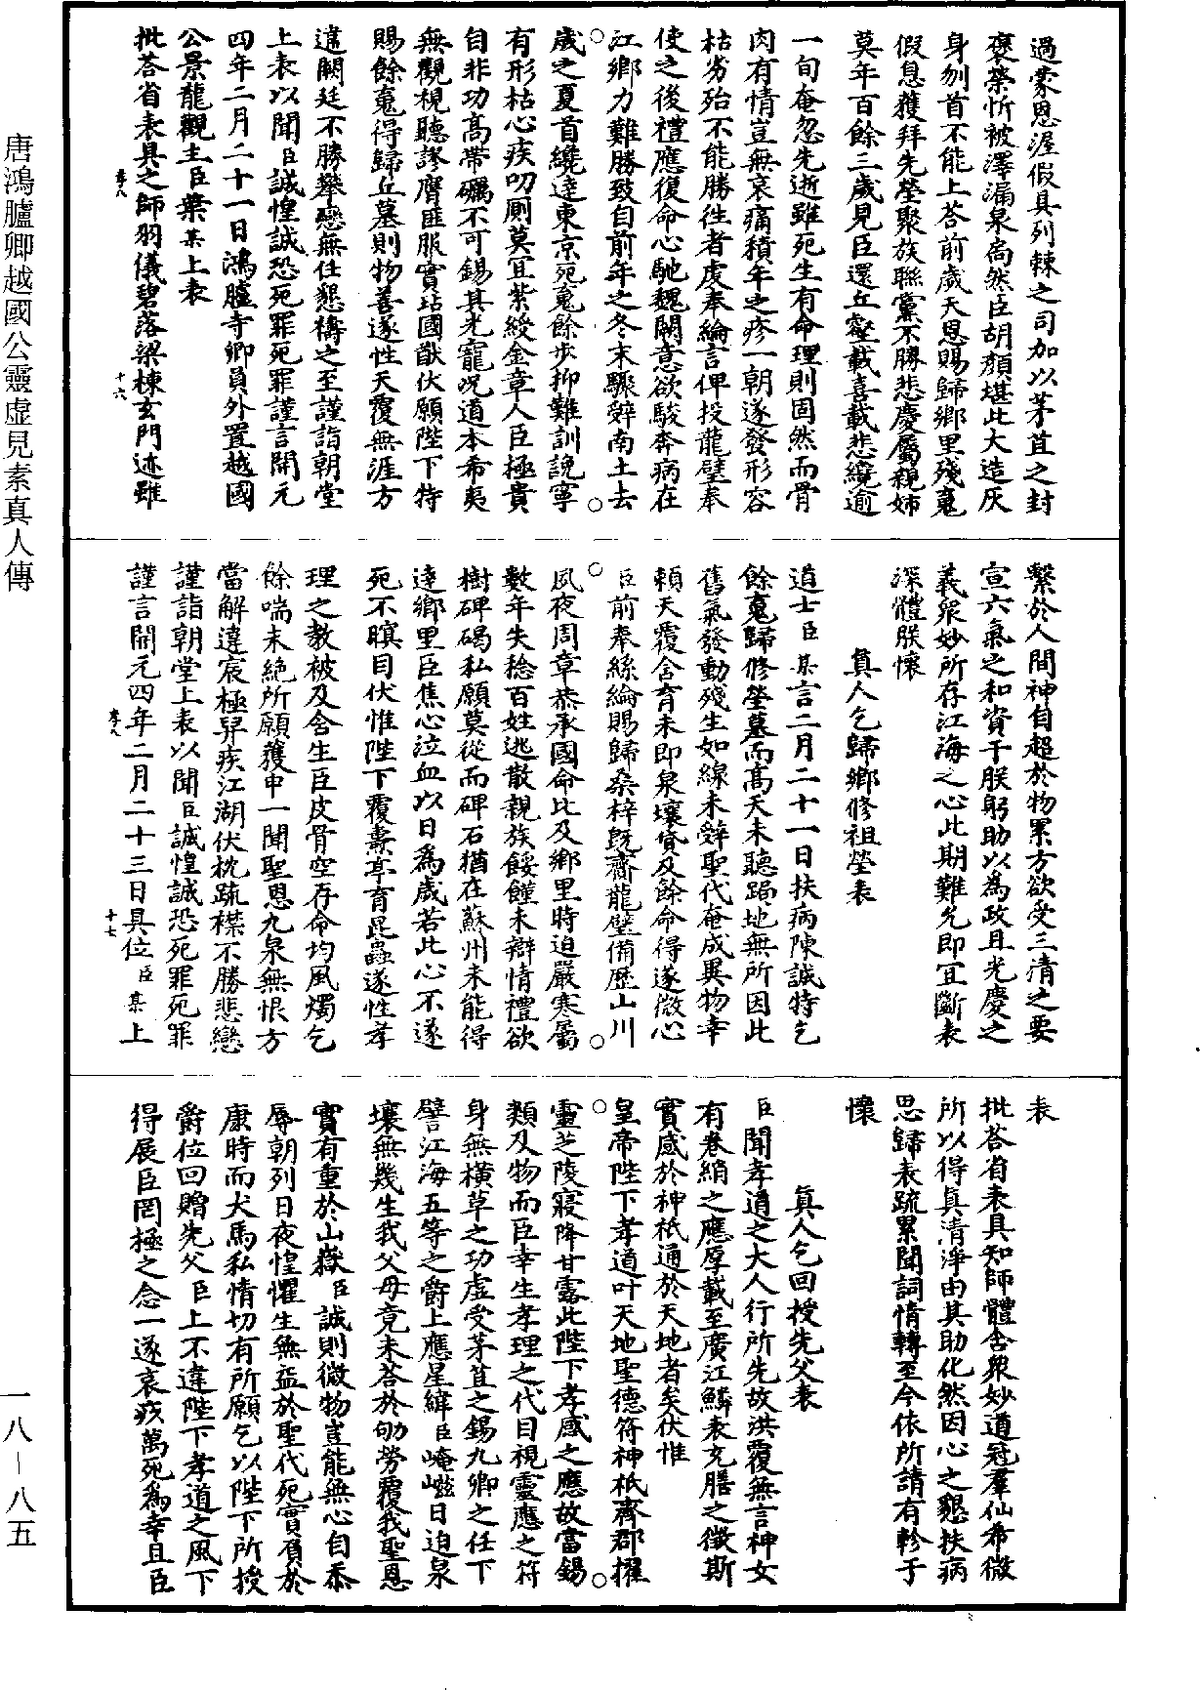 過蒙恩渥假具列棘之司加以茅苴之封
褒榮忻被澤漏泉扃然臣胡顏堪此大造灰
身刎首不能上荅前歲天恩賜歸鄉里殘䰟
假息獲拜先塋聚族聯黨不勝悲慶屬親姉
莫年百餘三歲見臣還丘壑載喜載悲纔逾
一旬奄忽先逝雖死生有命理則固然而骨
肉有情豈無哀痛積年之疹一朝遂發形容
枯劣殆不能勝徃者虔奉綸言俾投龍璧奉
使之後禮應復命心馳魏闕意欲駿奔病在
江鄉力難勝致自前年之冬末驟辤南土去
歲之夏首纔達東京死䰟餘步抑難訓說寧
有形枯心疾叨厠莫冝紫綬金章人臣極貴
自非功高帶礪不可錫其光寵况道本希夷
無觀視聽謬膺匪服實玷國猷伏願陛下特
賜餘䰟得歸丘墓則物善遂性天覆無涯方
違闕廷不勝攀戀無任懇禱之至謹詣朝堂
上表以聞臣誠惶誠恐死罪死罪謹言開元
四年二月二十一日鴻臚寺卿員外置越國
公景龍觀主臣葉某上表
批荅省表具之師羽儀碧落梁棟玄門迹雖
孝八 十六
繫於人間神自超於物累方欲受三清之要
宣六氣之和資于朕躬助以為政且光慶之
義衆妙所存江海之心此期難允即宜斷表
深體朕懷
真人乞歸鄉修祖塋表
道士臣某言二月二十一日扶病陳誠特乞
餘䰟歸修塋墓而高天未聽跼地無所因此
舊氣發動殘生如線未辤聖代奄成異物幸
賴天覆含育未即泉壤貸及餘命得遂微心
臣前奉絲綸賜歸桑梓旣齎龍璧備歷山川
夙夜周章恭承國命比及鄉里時迫嚴寒屬
數年失稔百姓逃散親族餒饉未辯情禮欲
樹碑碣私願莫從而碑石猶在蘇州未能得
達鄉里臣焦心泣血以日為歲若此心不遂
死不瞑目伏惟陛下覆燾亭育昆蟲遂性孝
理之教被及含生臣皮骨空存命均風燭乞
餘喘未絶所願獲申一聞聖恩九泉無恨方
當解違宸極舁疾江湖伏枕疏襟不勝悲戀
謹詣朝堂上表以聞臣誠惶誠恐死罪死罪
謹言開元四年二月二十三日具位臣某上
孝八 十七
表
批荅省表具知師體含衆妙道冠羣仙希微
所以得真清淨由其助化然因心之懇扶病
思歸表疏累聞詞情轉至今依所請有軫于
懷
真人乞回授先父表
臣聞孝道之大人行所先故洪覆無言神女
有卷綃之應厚載至廣江鱗表充膳之徵斯
實感於神祇通於天地者矣伏惟
皇帝陛下孝道叶天地聖德符神祇齊郡擢
靈芝陵寢降甘露此陛下孝感之應故當錫
類及物而臣幸生孝理之代目視靈應之符
身無橫草之功虛受茅苴之錫九卿之任下
譬江海五等之爵上應星緯臣崦嵫日迫泉
壤無幾生我父母竟未荅於劬勞覆我聖恩
實有重於山嶽臣誠則微物豈能無心自忝
辱朝列日夜惶懼生無益於聖代死實負於
康時而犬馬私情切有所願乞以陛下所授
爵位回贈先父臣上不違陛下孝道之風下
得展臣罔極之念一遂哀疾萬死為幸且臣
唐鴻臚卿越國公靈虛見素真人傳
一八－八五